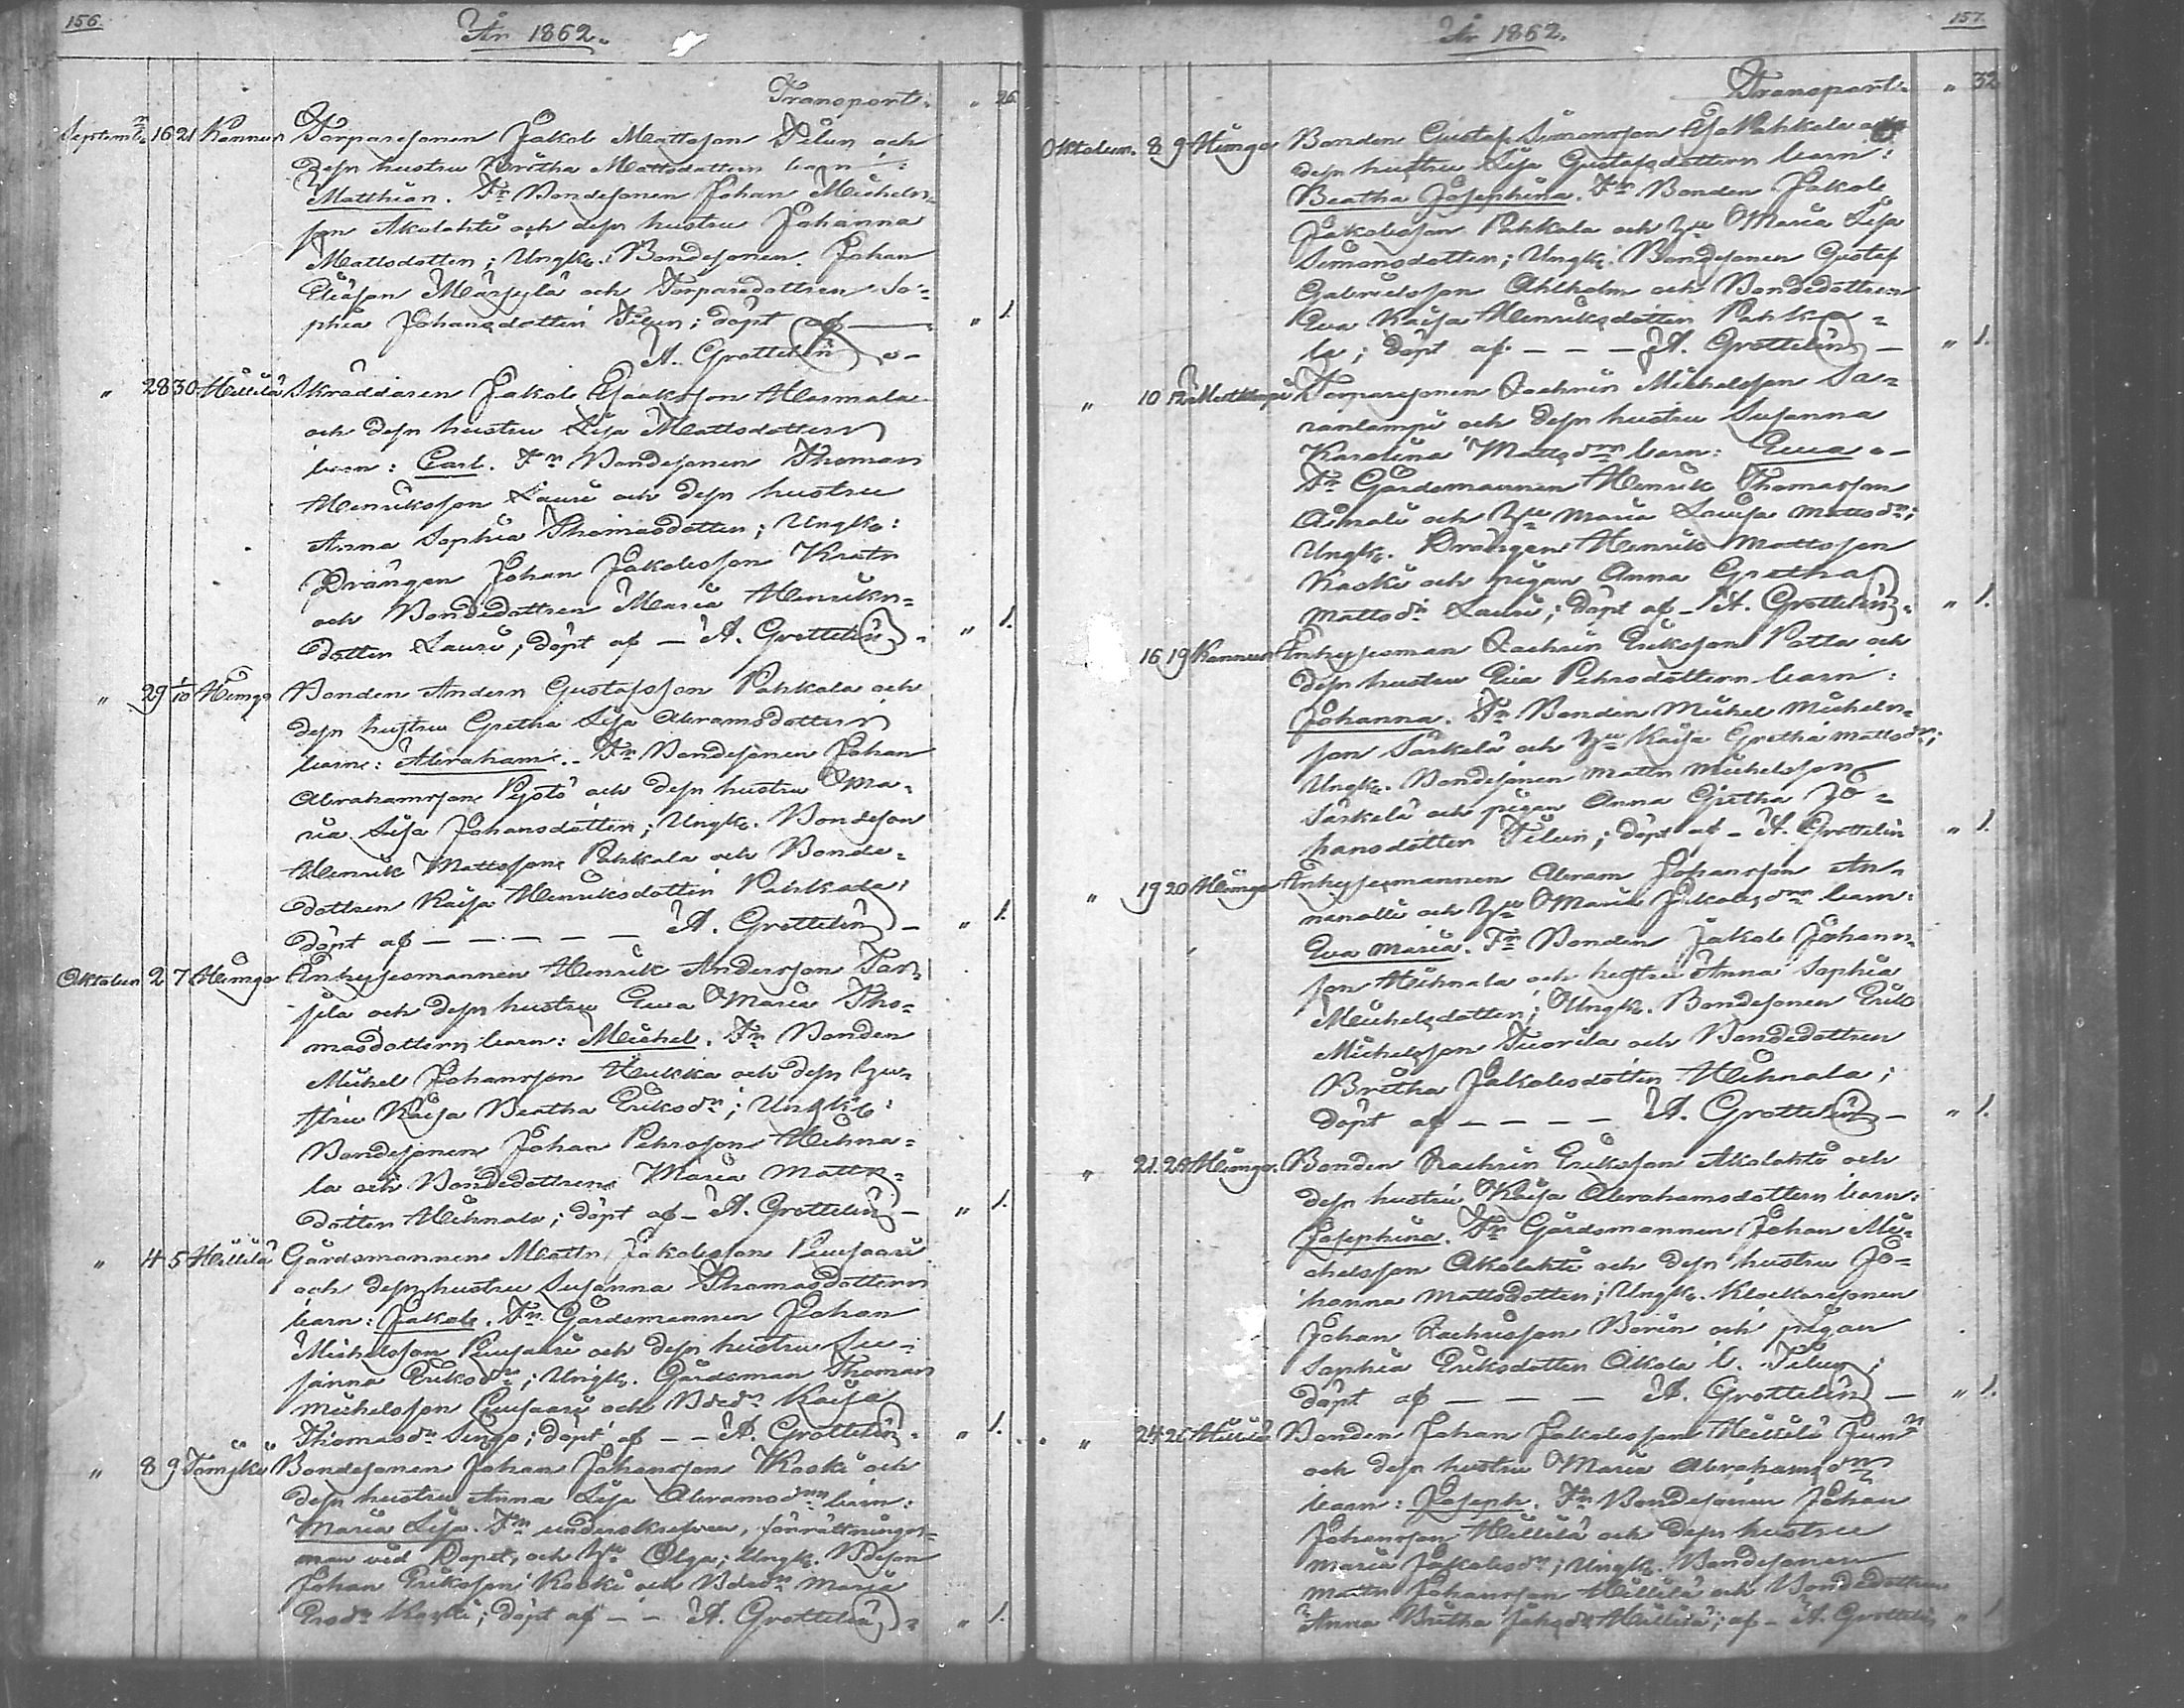 156.
År 1862.
Transport. " 26.
Septemb. 16 21 Kannus Torparesonen Jakob Mattsson Tilus och
dess hustru Britha Mattsdotters barn:
Matthias. Fr. Bondesonen Johan Michels-
son Akolahti och dess hustru Johanna
Mattsdotter; Ungk. Bondesonen Johan
Eliasson Märsylä och Torparedottren So-
phia Johansdotter Tilus; döpt af " 1.
A. Grottelin
" 28 30 Hillilä Skräddaren Jakob Isaksson Harmala
och dess hustru Lisa Mattsdotters
barn: Carl. Fr. Bondesonen Thomas
Henriksson Lauri och dess hustru
Anna Sophia Thomasdotter; Ungk.
Drängen Johan Jakobsson Kratz
och Bondedottren Maria Henriks-
dotter Lauri; döpt af – A. Grottelin " 1.
" 29 1/10 Himgo Bonden Anders Gustafsson Pahkala och
dess hustru Gretha Lisa Abramsdotters
barn: Abraham. Fr. Bondesonen Johan
Abrahamsson Pystö och dess hustru Ma-
ria Lisa Johansdotter; Ungk. Bondeson
Henrik Mattsson Pahkala och Bonde-
dottren Kaisa Henriksdotter Pahkala;
döpt af – – – – – A. Grottelin – " 1.
Oktober 2 7 Himgo Inhysesmannen Henrik Andersson
och dess hustru Ewa Maria Tho-
masdotters barn: Michel. Fr. Bonden
Michel Johansson Hukka och dess hu-
stru Kaisa Beatha Eriksdr; Ungk.
Bondesonen Johan Pehrsson Hihna-
la och Bondedottren Maria Matts-
dotter Hihnala; döpt af – A. Grottelin – " 1.
" 4 5 Hillilä Gårdsmannen Matts Jakobsson Puusaari
och dess hustru Susanna Thomasdotters
barn: Jakob. Fr. Gårdsmannen Johan
Michelsson Puusaari och dess hustru Su-
sanna Eriksdr; Ungk. Gårdsman Thomas
Michelsson Puusaari och Bdedr Kaisa
Thomasdr; döpt af – – A. Grottelin " 1.
" 8 9 Tomujki Bondesonen Johan Johansson Koski och
dess hustru Anna Lisa Abramsdrs barn:
Maria Lisa. Fr. underskrefven, förrättnings-
man vid Dopet, och hu Olga; Ungk. Bdeson
Johan Eriksson Koski och Bdedr Maria
Koski; döpt af – – A. Grottelin " 1.
157.
År 1862.
Transport. " 32
Oktober. 8 9 Himgo Bonden Gustaf Simonsson Pahkala och
dess hustru Lisa Gustafsdotters barn:
Beatha Josephina. Fr. Bonden Jakob
Jakobsson Pahkala och hu Maria Lisa
Simonsdotter; Ungk. Bondesonen Gustaf
Gabrielsson Ahlholm och Bondedottren
Eva Kaisa Henriksdotter Pahka-
la; döpt af – – – A. Grottelin – " 1.
" 10 12 Torparesonen Zachris Michelsson Sa-
ranlampi och dess hustru Susanna
Karolina Mattsdrs barn: Ewa –
Fr. Gårdsmannen Henrik Thomasson
Ainali och hu Maria Lovisa Mattsdr;
Ungk. Drängen Henrik Mattsson
Koski och pigan Anna Gretha
Mattsdr Lauri; döpt af – A. Grottelin " 1.
16 19 Kannus Inhysesman Zachris Eriksson Potta och
dess hustru Eva Pehrsdotters barn:
Johanna. Fr. Bonden Michel Michels-
son Särkelä och hu Kaisa Gretha Mattsdr;
Ungk. Bondesonen Matts Michelsson
Särkelä och pigan Anna Gretha Jo-
hansdotter Tilus; döpt af – A. Grottelin " 1.
" 19 20 Himgo Inhysesmannen Abram Johansson An-
nanolli och hu Maria Jakobsdrs barn:
Eva Maria. Fr. Bonden Jakob Johans-
son Hihnala och hustru Anna Sophia
Michelsdotter; Ungk. Bondesonen Erik
Michelsson Tuorila och Bondedottren
Britha Jakobsdotter Hihnala;
döpt af – – – – A. Grottelin – " 1.
" 21. 26 Himgo. Bonden Zachris Eriksson Akolahti och
dess hustru Kaisa Abrahamsdotters barn:
Josephina. Fr. Gårdsmannen Johan Mi-
chelsson Akolahti och dess hustru Jo-
hanna Mattsdotter; Ungk. Klockaresonen
Johan Zachrisson Borin och pigan
Sophia Eriksdotter Akola l. Tilus;
döpt af – – – A. Grottelin – " 1.
" 24 26 Hillilä Bonden Johan Jakobsson Hillilä Junr
och dess hustru Maria Abrahamsdrs
barn: Joseph. Fr. Bondesonen Johan
Johansson Hillilä och dess hustru
Maria Jakobsdr; Ungk. Bondesonen
Matts Johansson Hillilä och Bondedottren
Anna Britha Jaksdr Hillilä; af – A. Grottelin " 1